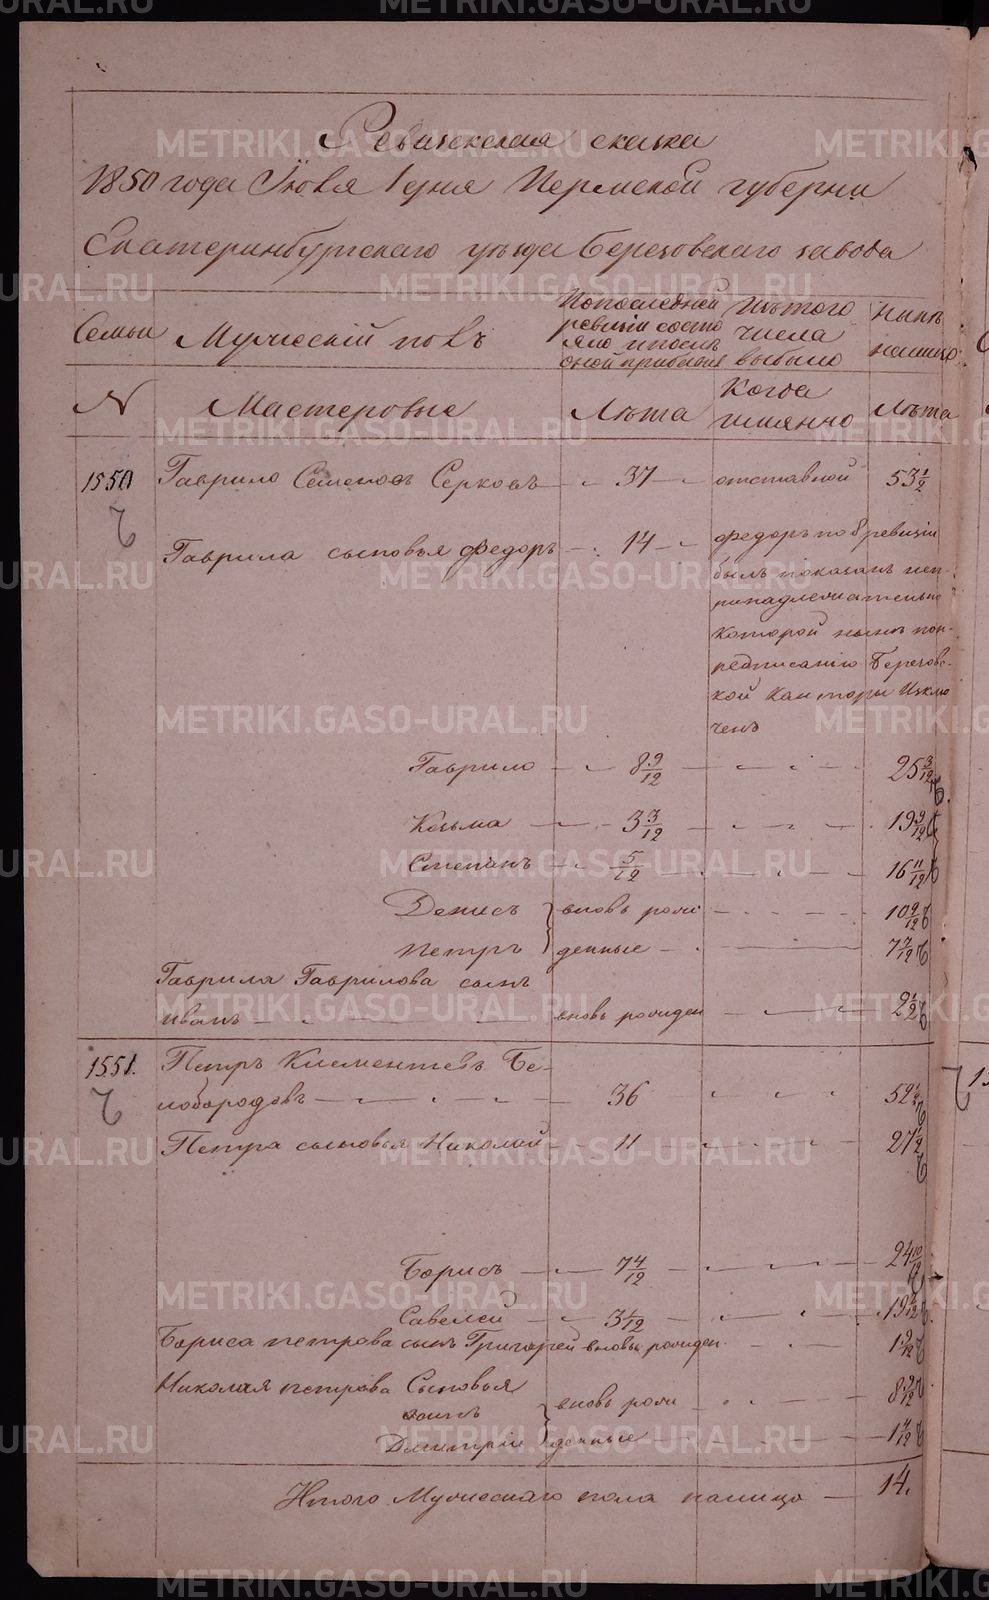 Ревизская сказка
1850 года Іюля 1 дня Пермской губерни
Екатеринбургскаго уезда Березовскаго завода
Семьи
Мужескій полъ
По последней ревизіи состояло и после оной прибылия
Изъ того числа выбыло
Ныне на лицо
N
Мастеровые
Лѣта
Когда имянно
Лѣта
1550 Гаврило Семеновъ Серковъ 37 отставной 53 1/2
Гаврила сыновья Федоръ 14 федоръ по 8 ревизіи
былъ показанъ неп-
ринадлежательно
которой ныне поп-
редписанію Березовс-
кой Канторы Исклю
ченъ
Гаврило 8 9/12 25 3/12
Козьма 3 3/12 19 9/12
Степанъ 5/12 16 11/12
Денисъ вновь рож 10 9/12
Петръ денные 7 7/12
Гаврила Гаврилова сынъ
Иванъ вновь рожден 2 1/2
1551. Петръ Клементьевъ Бе-
лобородовъ 36 52 1/2
Петра сыновья Николай 11 27 1/2
Борисъ 7 4/12 24 10/12
Савелей 3 1/12 19
Бориса петрова сынъ Григорей вновь рожден 1 9/12
Николая петрова Сыновья 8 9/12
вновь рож
Дмитрій денные 1 4/12
Итого Мужескаго пола налицо 14.
METRIKI.GASO-URAL.RU